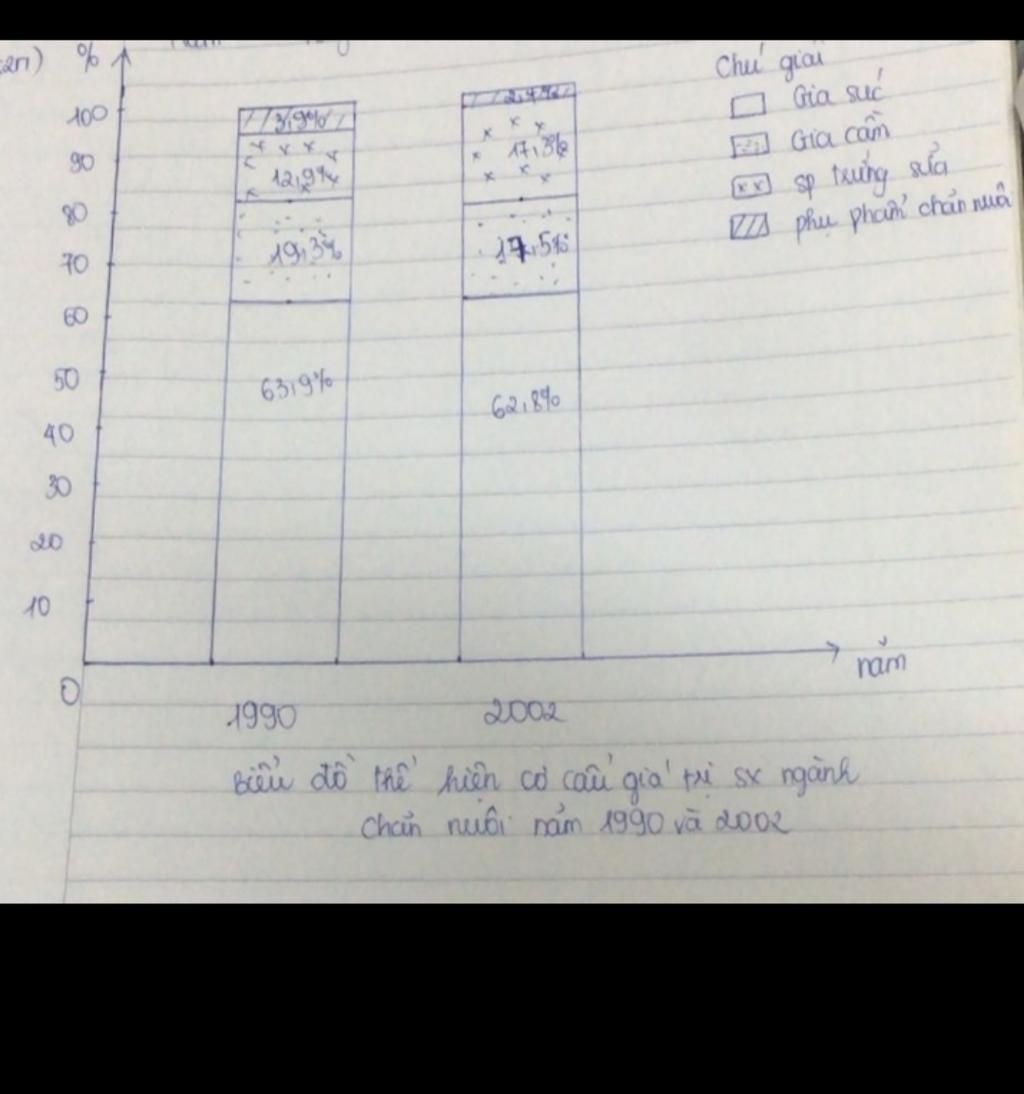 %
Chú giải
Gia súc
Gia cầm
sp trứng sữa
phụ phẩm chăn nuôi
100
90
80
70
60
50
40
30
20
10
0
3,9%
12,9%
19,3%
63,9%
17,3%
17,5%
62,8%
năm
1990 2002
Biểu đồ thể hiện cơ cấu giá trị sx ngành
chăn nuôi năm 1990 và 2002